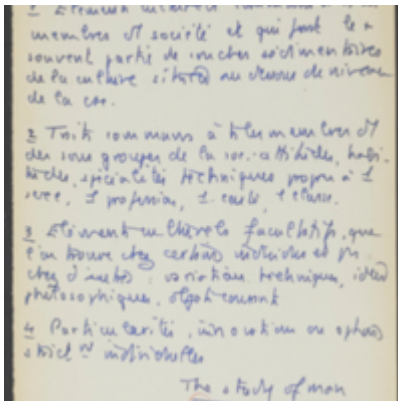 membres d'1 société et qui font le +
souvent partie de couches sédimentaires
de la culture situées au dessous de niveau
de la cs.
2 Traits communs à tous membres d'1
des sous groupes de la soc. : attitudes, habi-
tudes, spécialités techniques propres à 1
sexe, 1 profession, 1 caste, 1 classe.
3 Eléments culturels facultatifs, que
l'on trouve chez certains individus et pas
chez d'autres : variations techniques, idées
philosophiques, objets courants
4 Particularités, innovations ou options
strict^nt individuelles
The study of man